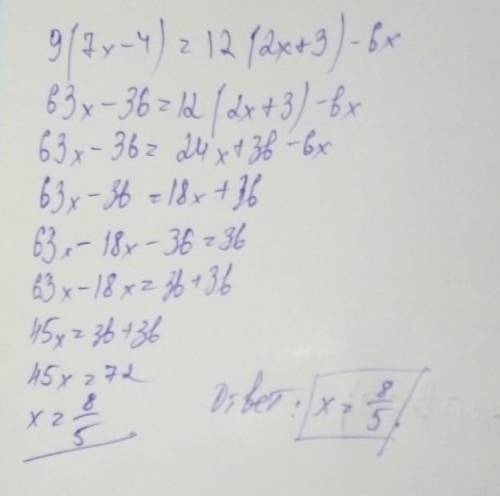 9(7x-4)=12(2x+3)-6x
63x-36=12(2x+3)-6x
63x-36=24x+36-6x
63x-36=18x+36
63x-18x-36=36
63x-18x=36+36
45x=36+36
45x=72
x=8/5
Ответ: x=8/5.